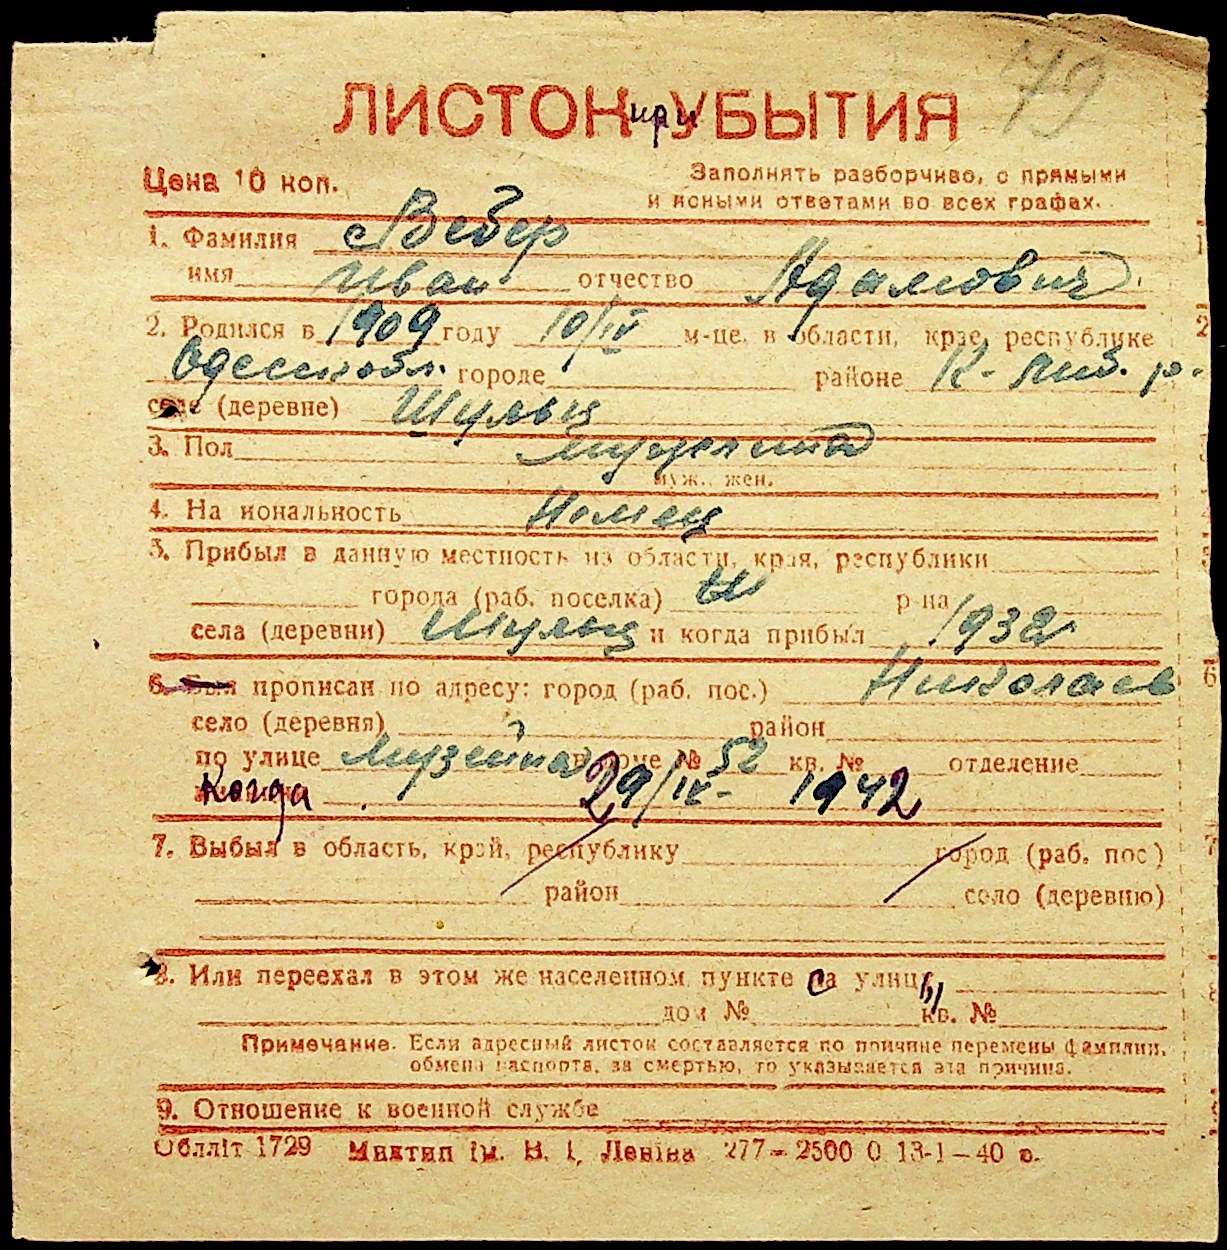 79
ЛИСТОК при УБЫТИЯ
Цена 10 коп.
Заполнять разборчиво, с прямыми
и ясными ответами во всех графах.
1. Фамилия Вебер
имя Иван отчество Адамович
2. Родился в 1909 году 10/IV м-це, в области, крае, республике
Одесской обл. городе районе К-Либ. р-
селе (деревне) Шульц
3. Пол мужчина
муж., жен.
4. Национальность Немец
5. Прибыл в данную местность из области, края, республики
города (раб. поселка) р-на
села (деревни) Шульц и когда прибыл 1932
6. Был прописан по адресу: город (раб. пос.) Николаев
село (деревня) район
по улице Музейна в доме № 52 кв. № отделение
Когда 29/IV- 1942
7. Выбыл в область, край, республику город (раб. пос)
район село (деревню)
8. Или переехал в этом же населенном пункте са улицы
дом № кв. №
Примечание. Если адресный листок составляется по причине перемены фамилии,
обмена паспорта, за смертью, то указывается эта причина.
9. Отношение к военной службе
Облліт 1729 Миктип ім. В. І. Леніна 277—2500 0 13-1—40 р.